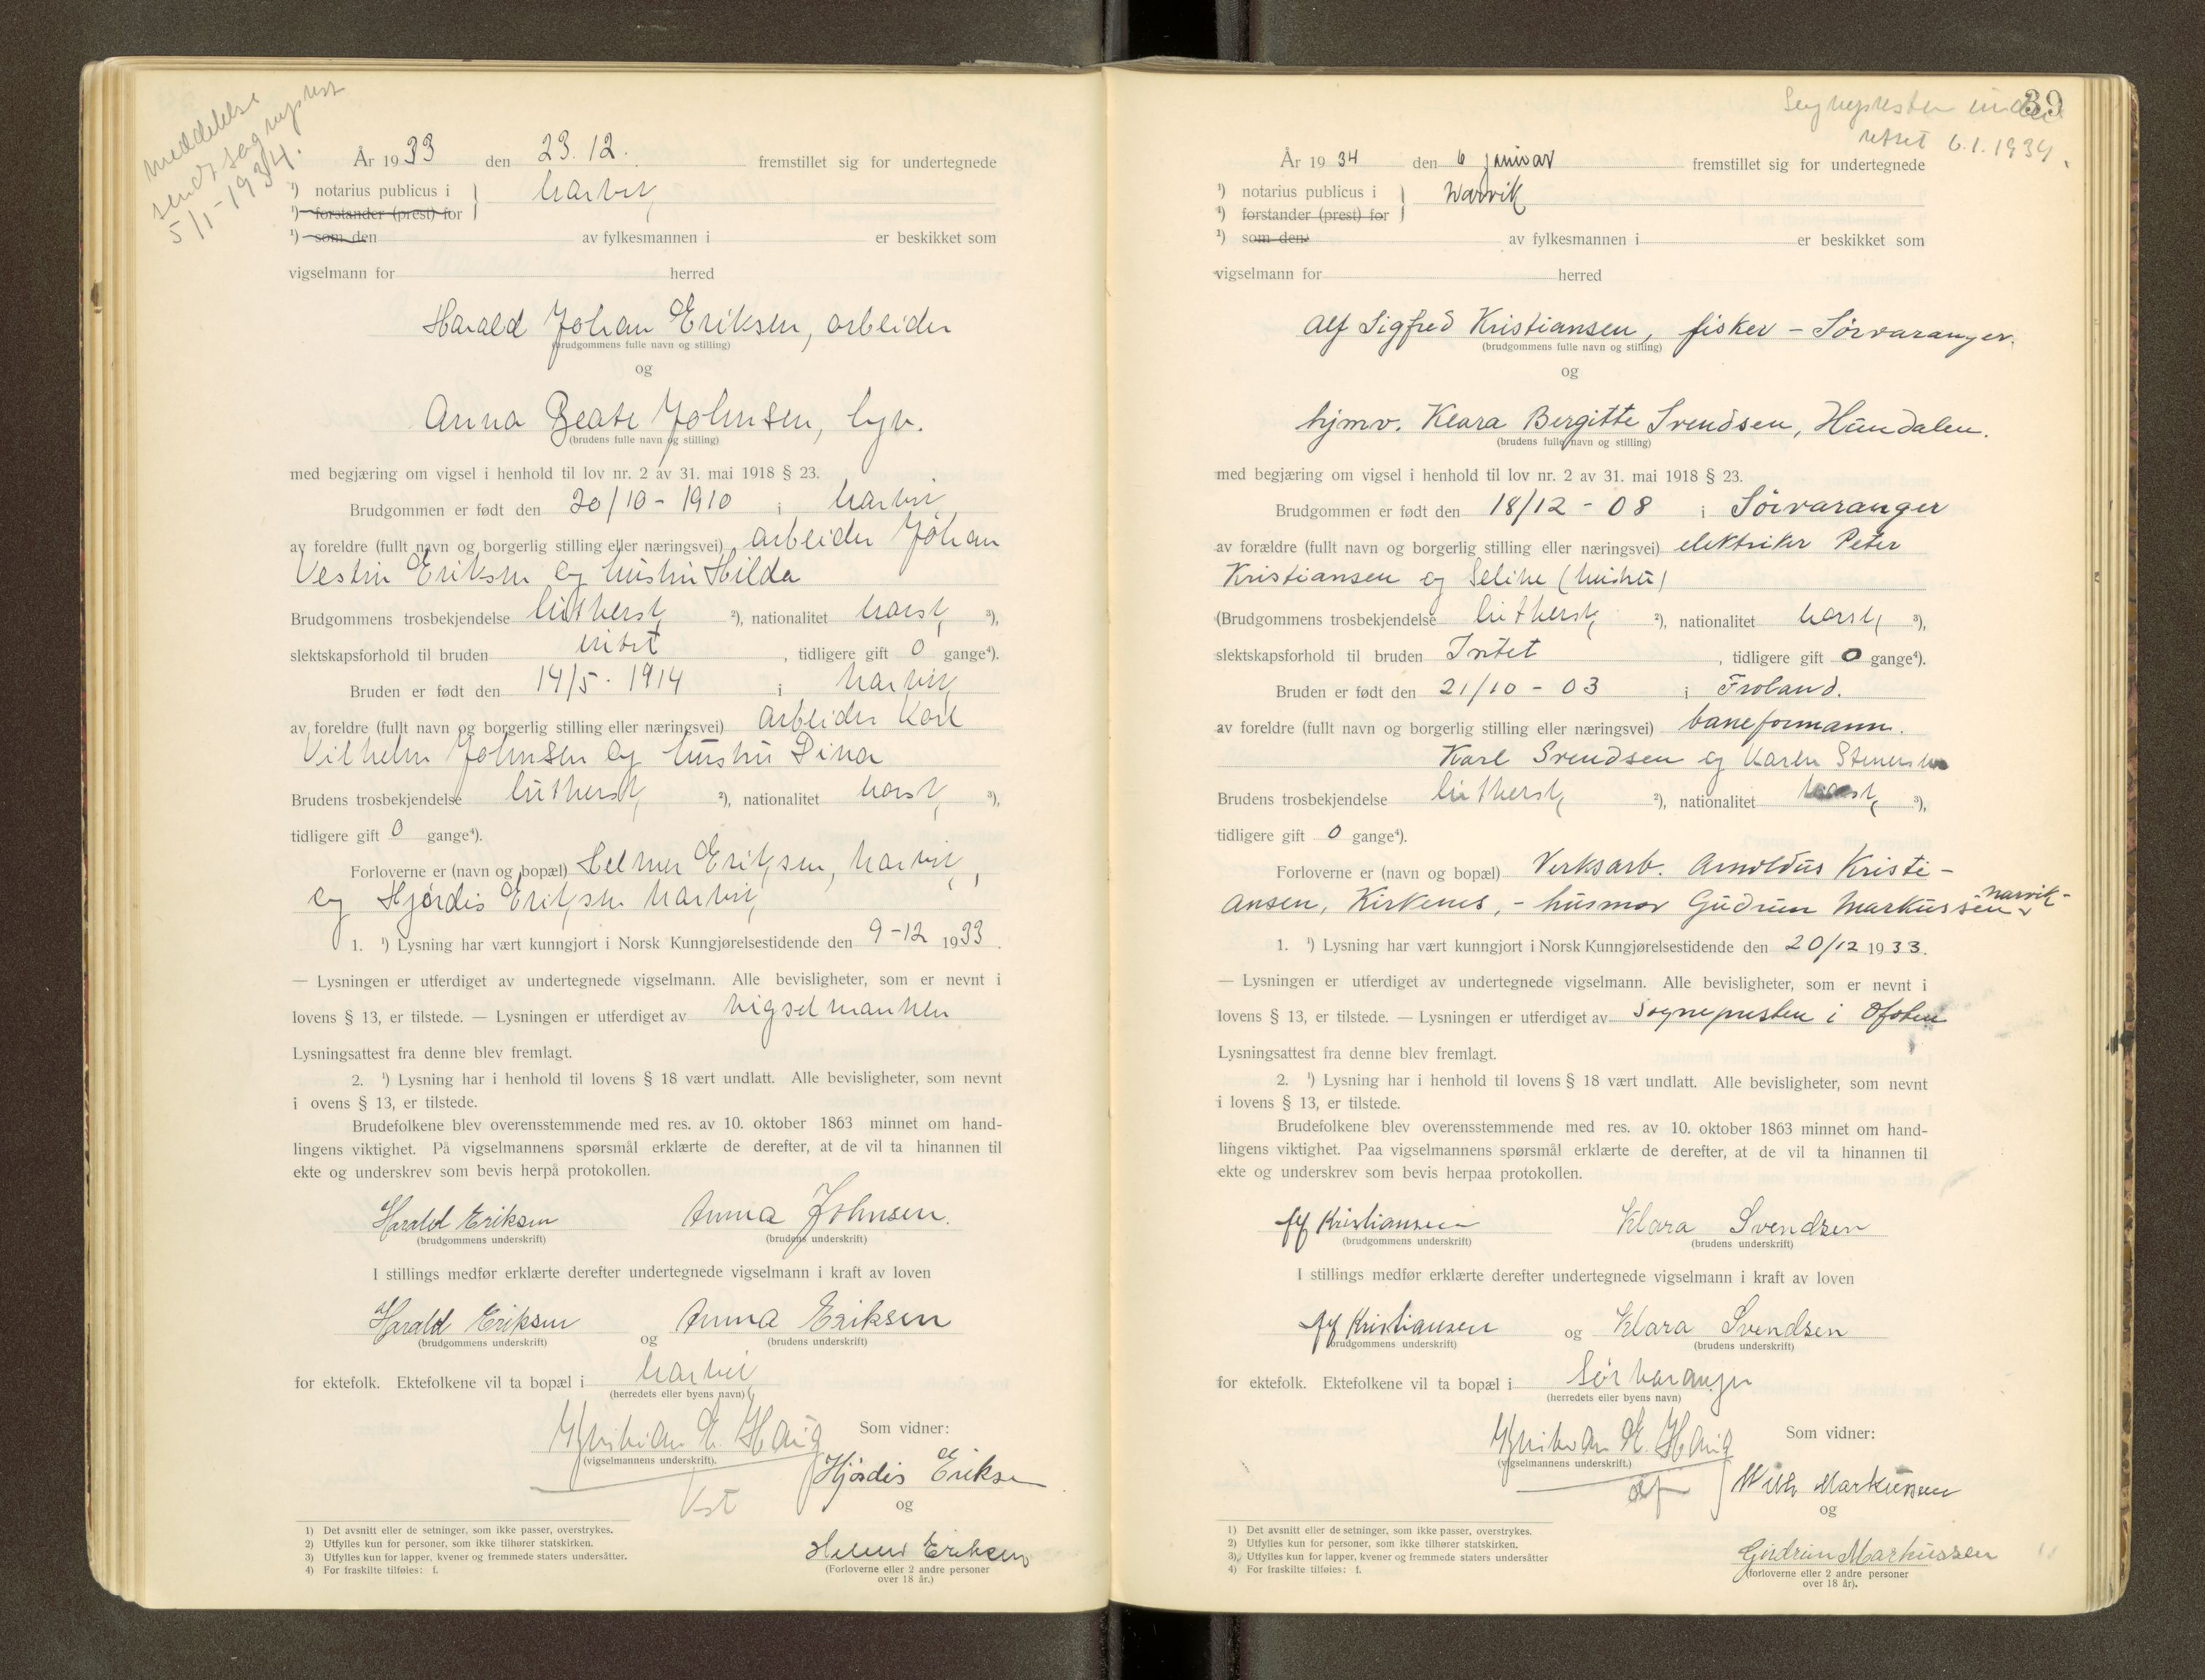 meddelelse
sendt sogneprest
5/1-1934.
År 1933 den 23. 12. fremstillet sig for undertegnede
¹) notarius publicus i } Narvik
¹) forstander (prest) for
¹) som den av fylkesmannen i er beskikket som
vigselmann for herred
Harald Johan Eriksen, arbeider
(brudgommens fulle navn og stilling)
og
Anna Beate Johnsen, Nyv.
(brudens fulle navn og stilling)
med begjæring om vigsel i henhold til lov nr. 2 av 31. mai 1918 § 23.
Brudgommen er født den 20/10 - 1910 i Narvik
av foreldre (fullt navn og borgerlig stilling eller næringsvei) arbeider Johan
Vestin Eriksen og hustru Hilda
Brudgommens trosbekjendelse luthersk ²), nationalitet norsk ³),
slektskapsforhold til bruden intet , tidligere gift 0 gange⁴).
Bruden er født den 14/5 - 1914 i Narvik
av foreldre (fullt navn og borgerlig stilling eller næringsvei) Arbeider Karl
Vilhelm Johnsen og hustru Dina
Brudens trosbekjendelse luthersk ²), nationalitet norsk ³),
tidligere gift 0 gange⁴).
Forloverne er (navn og bopæl) Helmer Eriksen, Narvik,
og Hjørdis Eriksen Narvik
1. ¹) Lysning har vært kunngjort i Norsk Kunngjørelsestidende den 9-12 1933.
— Lysningen er utferdiget av undertegnede vigselmann. Alle bevisligheter, som er nevnt i
lovens § 13, er tilstede. — Lysningen er utferdiget av vigselmannen
Lysningsattest fra denne blev fremlagt.
2. ¹) Lysning har i henhold til lovens § 18 vært undlatt. Alle bevisligheter, som nevnt
i ovens § 13, er tilstede.
Brudefolkene blev overensstemmende med res. av 10. oktober 1863 minnet om hand-
lingens viktighet. På vigselmannens spørsmål erklærte de derefter, at de vil ta hinannen til
ekte og underskrev som bevis herpå protokollen.
Harald Eriksen Anna Johnsen.
(brudgommens underskrift) (brudens underskrift)
I stillings medfør erklærte derefter undertegnede vigselmann i kraft av loven
Harald Eriksen og Anna Eriksen
(brudgommens underskrift) (brudens underskrift)
for ektefolk. Ektefolkene vil ta bopæl i Narvik
(herredets eller byens navn)
Kristian E. Haug Som vidner:
(vigselmannens underskrift).
Hjørdis Eriksen
og
Kst
Helmer Eriksen
(Forloverne eller 2 andre personer
over 18 år.)
1) Det avsnitt eller de setninger, som ikke passer, overstrykes.
2) Utfylles kun for personer, som ikke tilhører statskirken.
3) Utfylles kun for lapper, kvener og fremmede staters undersåtter.
4) For fraskilte tilføies: f.
39
Sogneprester under
rettet 6.1.1934.
År 1934 den 6 januar fremstillet sig for undertegnede
¹) notarius publicus i } Narvik
¹) forstander (prest) for
¹) som den av fylkesmannen i er beskikket som
vigselmann for herred
Alf Sigfred Kristiansen, fisker - Sørvaranger.
(brudgommens fulle navn og stilling)
og
hjmv. Klara Bergitte Svendsen, Hundalen.
(brudens fulle navn og stilling)
med begjæring om vigsel i henhold til lov nr. 2 av 31. mai 1918 § 23.
Brudgommen er født den 18/12 - 08 i Sørvaranger
av forældre (fullt navn og borgerlig stilling eller næringsvei) elektriker Peter
Kristiansen og Seline (hustru)
(Brudgommens trosbekjendelse luthersk ²), nationalitet norsk ³),
slektskapsforhold til bruden Intet , tidligere gift 0 gange⁴).
Bruden er født den 21/10 - 03 i Froland.
av foreldre (fullt navn og borgerlig stilling eller næringsvei) baneformann.
Karl Svendsen og Karen
Brudens trosbekjendelse luthersk ²), nationalitet norsk ³),
tidligere gift 0 gange⁴).
Forloverne er (navn og bopæl) Verksarb. Arnoldus Kristi-
ansen, Kirkenes, - husmor Gudrun Markussen Narvik -
1. ¹) Lysning har vært kunngjort i Norsk Kunngjørelsestidende den 20/12 1933.
— Lysningen er utferdiget av undertegnede vigselmann. Alle bevisligheter, som er nevnt i
lovens § 13, er tilstede. — Lysningen er utferdiget av Sognepresten i Ofoten
Lysningsattest fra denne blev fremlagt.
2. ¹) Lysning har i henhold til lovens § 18 vært undlatt. Alle bevisligheter, som nevnt
i lovens § 13, er tilstede.
Brudefolkene blev overensstemmende med res. av 10. oktober 1863 minnet om hand-
lingens viktighet. Paa vigselmannens spørsmål erklærte de derefter, at de vil ta hinannen til
ekte og underskrev som bevis herpaa protokollen.
Alf Kristiansen Klara Svendsen
(brudgommens underskrift) (brudens underskrift)
I stillings medfør erklærte derefter undertegnede vigselmann i kraft av loven
Alf Kristiansen og Klara Svendsen
(brudgommens underskrift) (brudens underskrift)
for ektefolk. Ektefolkene vil ta bopæl i Sørvaranger
(herredets eller byens navn)
Kristian E. Haug Som vidner:
(vigselmannens underskrift.)
Wilh Markussen
og
Gudrun Markussen
(forloverne eller 2 andre personer
over 18 år).
1) Det avsnitt eller de setninger, som ikke passer, overstrykes.
2) Utfylles kun for personer, som ikke tilhører statskirken.
3) Utfylles kun for lapper, kvener og fremmede staters undersåtter
4) For fraskilte tilføies: f.